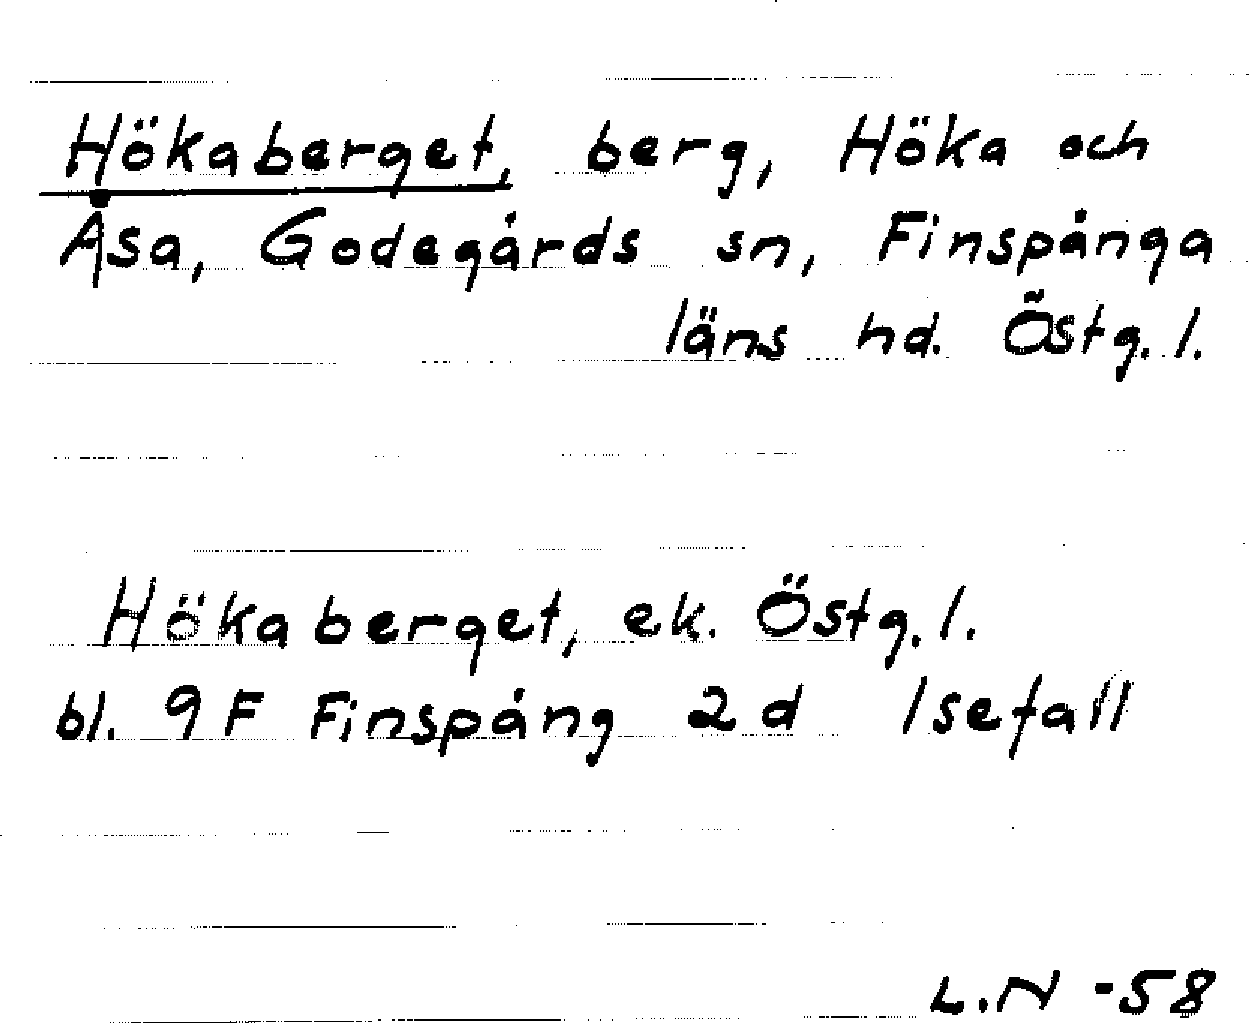 Hökaberget, berg, Höka och
Åsa, Godegårds sn, Finspånga
läns hd. Östg. l.
Hökaberget, ek. Östg. l.
bl. 9 F Finspång 2 d Isefall
L.N -58